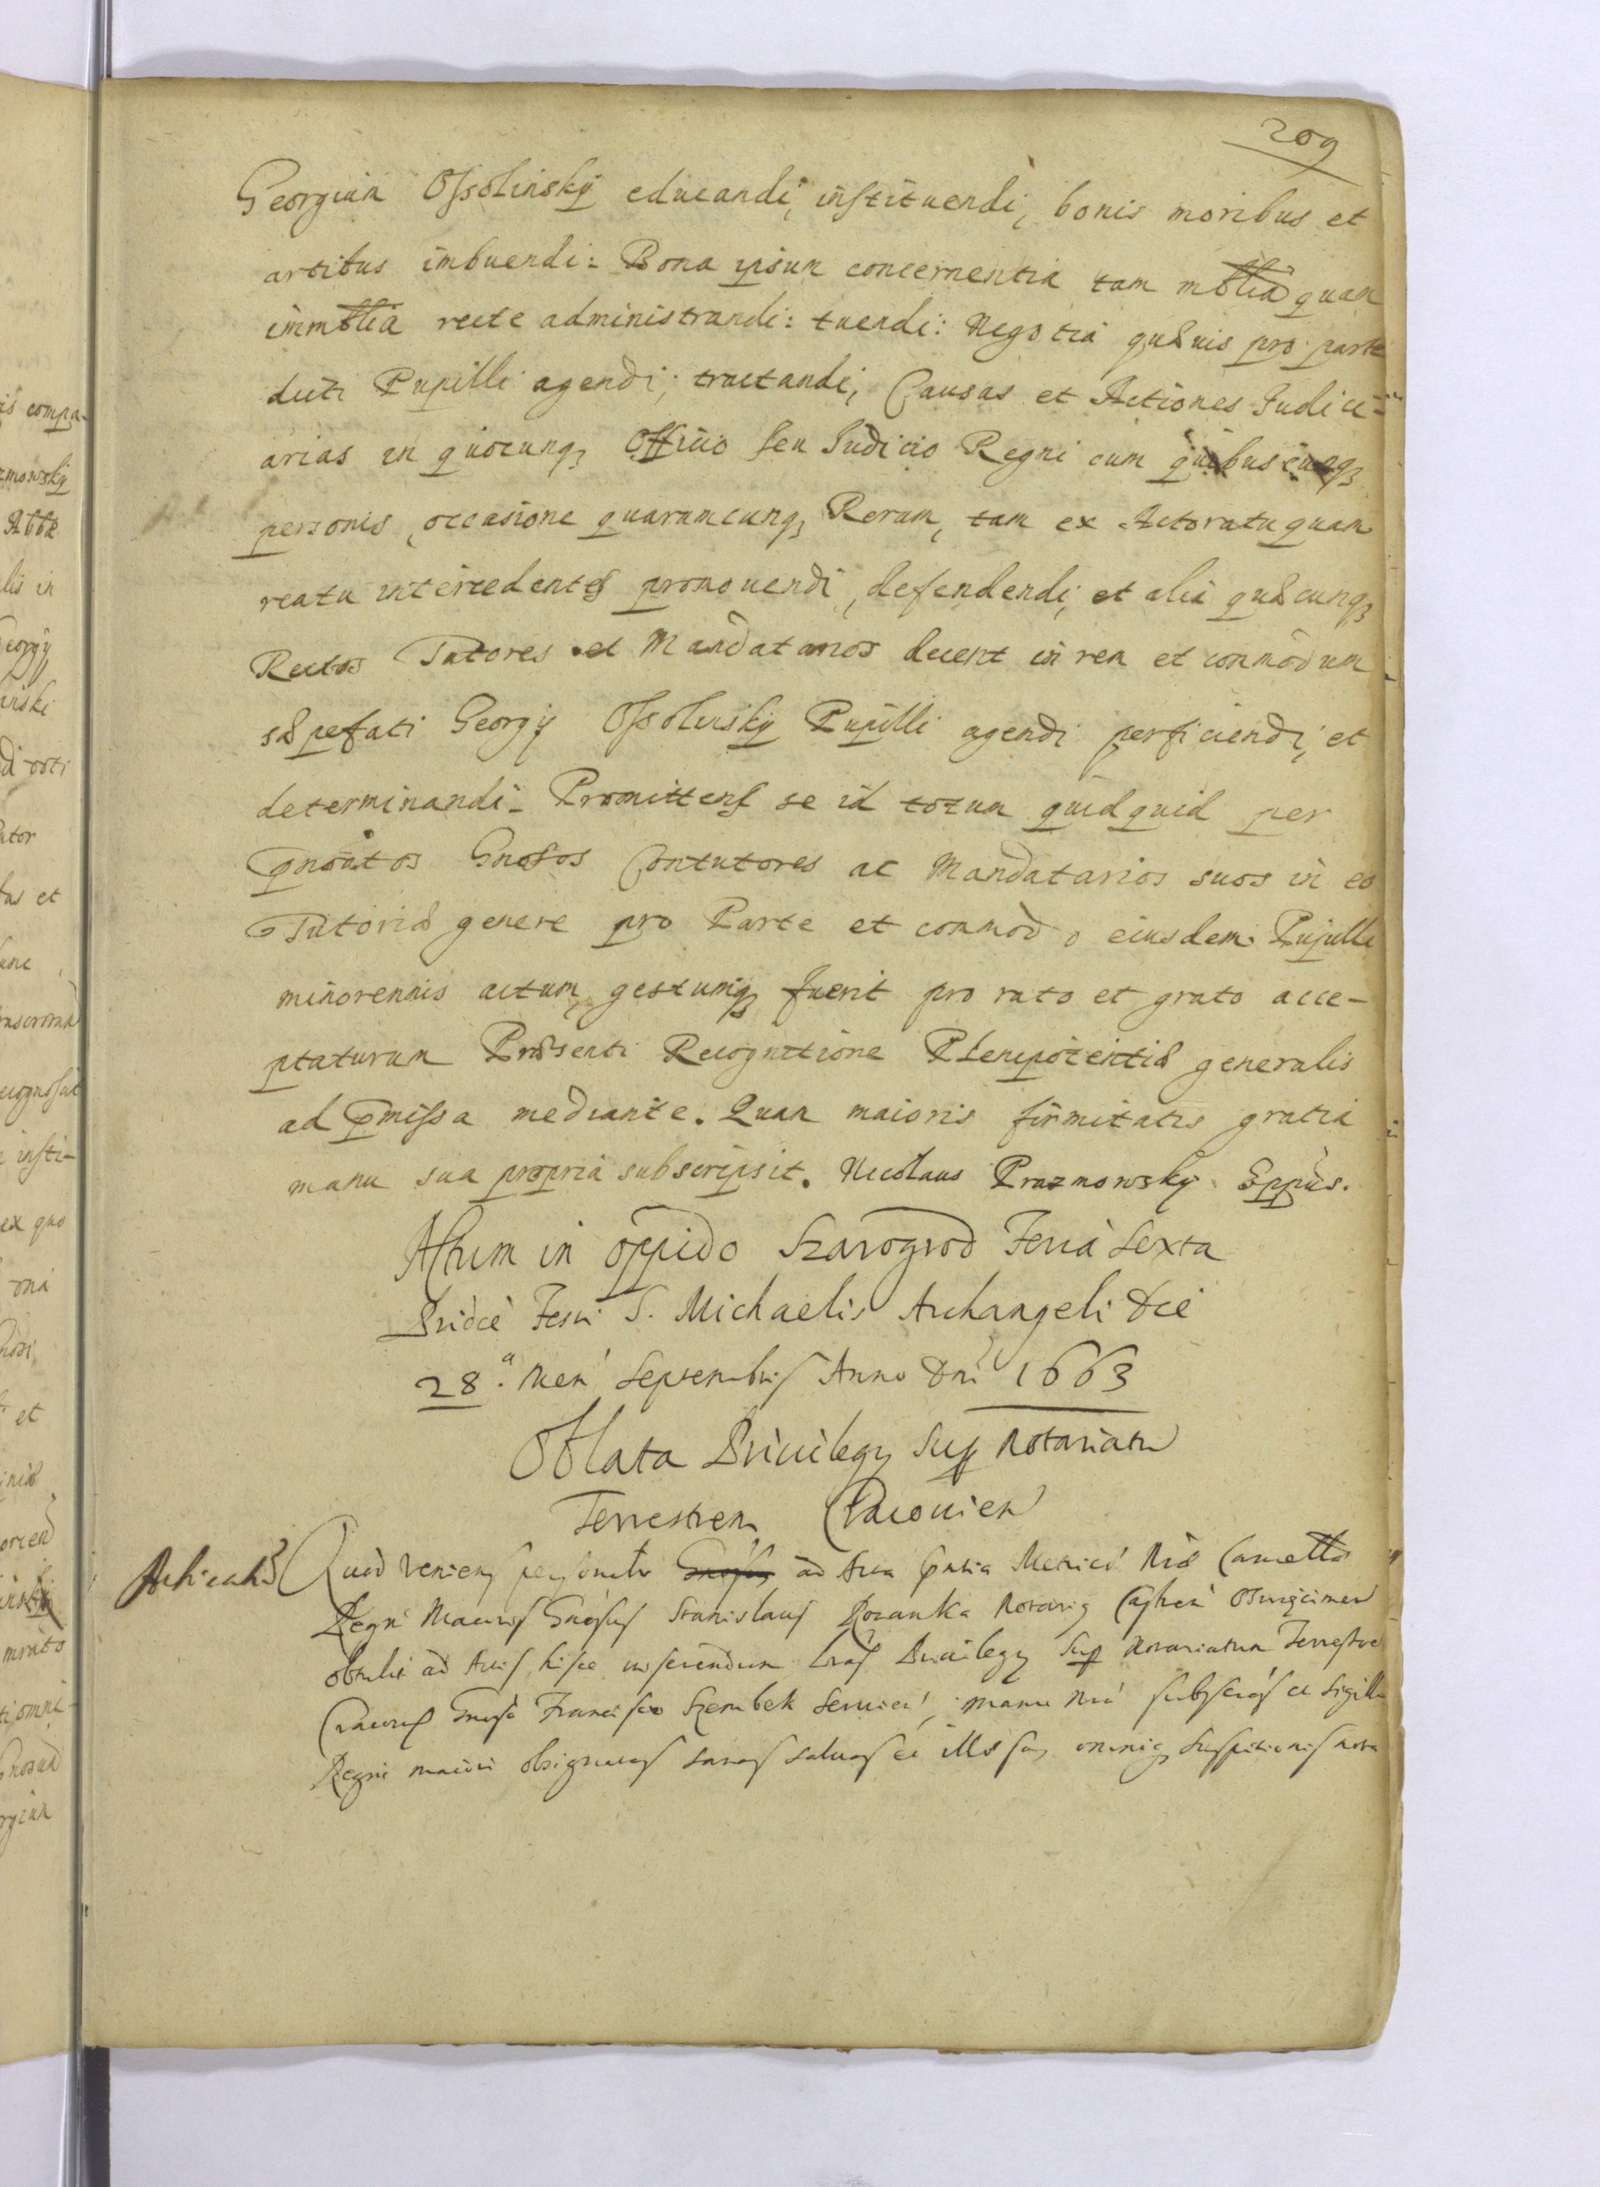 209
Georgium Ossolinsky educandi, instituendi, bonis moribus et
artibus imbuendi: Bona ipsum concernentia tam mblia quam
immblia recte administrandi: tuendi: Negotia quævis pro parte
dicti Pupilli agendi, tractandi, Causas et Actiones Judici-
arias in quocunq, Officio seu Judicio Regni cum quibuscunq,
personis, occasione quarumcunq, Rerum, tam ex Actoratu quam
reatu intercedentes promouendi, defendendi, et alia quæcunq,
Rectos Tutores et Mandatarios decent in rem et commodum
sæpefati Georgij Ossolinsky Pupilli agendi perficiendi, et
determinandi. Promittens se id totum quidquid per
pnoatos Gnosos Contutores ac Mandatarios suos in eo
Tutoriæ genere pro Parte et commodo eiusdem Pupilli
minorennis actum gestumq, fuerit pro rato et grato acce-
ptaturum Præsenti Recognitione Plenipotentiæ generalis
ad pmissa mediante. Quam maioris firmitatis gratia
manu sua propria subscripsit. Nicolaus Prazmowsky Eppus.
Actum in oppido Szarogrod Feria Sexta
Pridie Festi S. Michaelis Archangeli die
28.a Men Septembris Anno Dni 1663
Oblata Priuilegij Sup Notariatu
Terrestrem Cracouien
Quod veniens personalr ad Acta pntia Metrices Rnæ Cancellæ
Regni Maioris Gnosus Stanislaus Notarius Castren Osviecimen
obtulit ad Actis hisce inserendum Lras Priuilegij Sup Notariatum Terrestre
Cracovien Gnoso Francisco Szembek seruien, manu Nra subscras et Sigillo
Regni maiori obsignatas sanas saluas et illæsas omniq, suspitionis nota